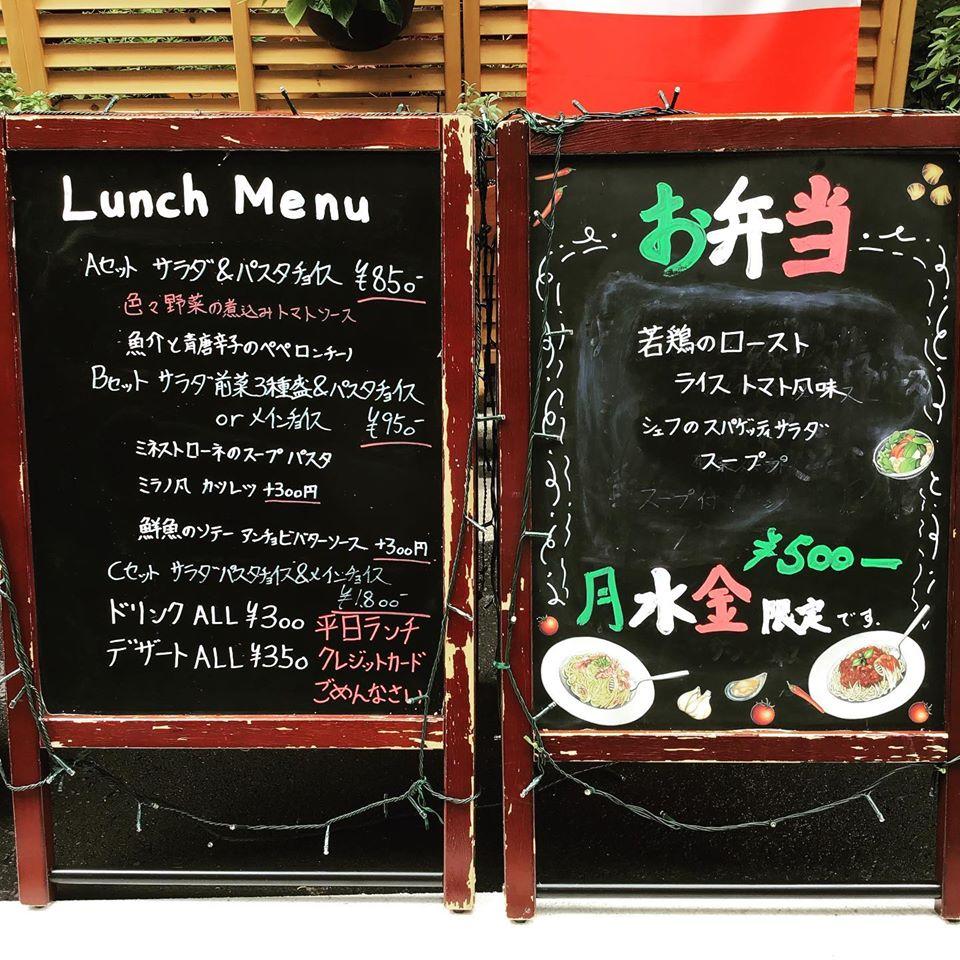 Lunch Menu
Aセット サラダ&パスタチョイス ¥850-
色々野菜の煮込みトマトソース
魚介と青唐辛子のペペロンチーノ
Bセット サラダ前菜3種盛&パスタチョイス
or メインチョイス ¥950-
ミネストローネのスープパスタ
ミラノ風 カツレツ +300円
鮮魚のソテー アンチョビバターソース +300円
Cセット サラダパスタチョイス&メインチョイス
¥1,800-
ドリンク ALL ¥300
デザート ALL ¥350
平日ランチ
クレジットカード
ごめんなさい
お弁当
若鶏のロースト
ライス トマト風味
シェフのスパゲッティサラダ
スープ
スープ付
¥500-
月水金限定です.